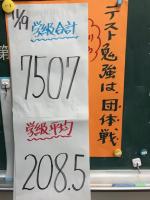 11/9
学級合計
7507
学級平均
208.5
テスト勉強は、団体戦